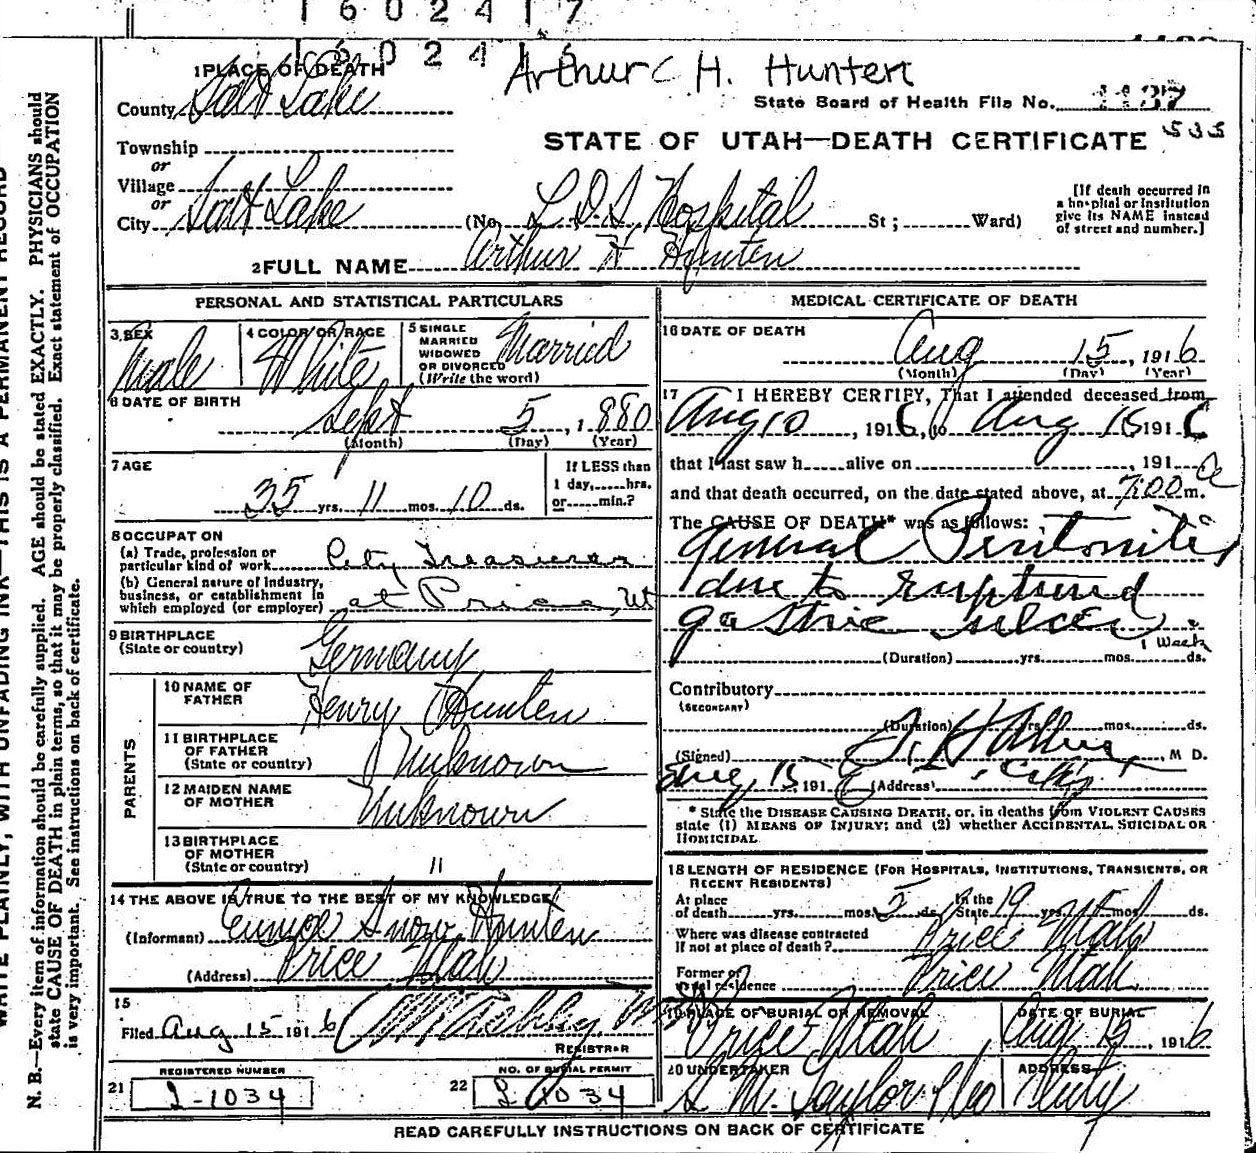 1 6 0 2 4 1 7
1 6 0 2 4 1 6
Arthur C H. Hunten
State Board of Health File No. 1437
535
STATE OF UTAH—DEATH CERTIFICATE
1 PLACE OF DEATH
County Salt Lake
Township
or
Village
or
City Salt Lake (No. L.D.S. Hospital St ; Ward)
[If death occurred in
a hospital or institution
give its NAME instead
of street and number.]
2 FULL NAME Arthur H Hunten
PERSONAL AND STATISTICAL PARTICULARS
3 SEX Male
4 COLOR OR RACE White
5 SINGLE
MARRIED
WIDOWED
OR DIVORCED
(Write the word)
Married
6 DATE OF BIRTH
Sept 5, 1880
(Month) (Day) (Year)
7 AGE
35 yrs. 11 mos. 10 ds.
If LESS than
1 day, hrs.
or min.?
8 OCCUPATION
(a) Trade, profession or
particular kind of work City Treasurer
(b) General nature of industry,
business, or establishment in
which employed (or employer) at Price, Ut
9 BIRTHPLACE
(State or country) Germany
PARENTS
10 NAME OF
FATHER Henry Hunten
11 BIRTHPLACE
OF FATHER
(State or country) Unknown
12 MAIDEN NAME
OF MOTHER Unknown
13 BIRTHPLACE
OF MOTHER
(State or country) "
14 THE ABOVE IS TRUE TO THE BEST OF MY KNOWLEDGE
(Informant) Eunice Snow Hunten
(Address) Price Utah
15
Filed Aug 15 1916
REGISTRAR
REGISTERED NUMBER
21 2-1034
NO. OF BURIAL PERMIT
22 2 1034
MEDICAL CERTIFICATE OF DEATH
16 DATE OF DEATH
Aug 15, 1916
(Month) (Day) (Year)
17 I HEREBY CERTIFY, That I attended deceased from
Aug 10, 1916, to Aug 15 1916
that I last saw h alive on , 191
and that death occurred, on the date stated above, at 7:00 a m.
The CAUSE OF DEATH* was as follows:
General Peritonitis
due to ruptured
gastric ulcer
1 week
(Duration) yrs. mos. ds.
Contributory
(SECONDARY)
(Duration) yrs. mos. ds.
(Signed) M D.
Aug 15, 1916 (Address) City
* State the DISEASE CAUSING DEATH, or, in deaths from VIOLENT CAUSES
state (1) MEANS OF INJURY; and (2) whether ACCIDENTAL, SUICIDAL OR
HOMICIDAL
18 LENGTH OF RESIDENCE (FOR HOSPITALS, INSTITUTIONS, TRANSIENTS, OR
RECENT RESIDENTS)
At place
of death yrs. mos. 5 ds. In the
State 19 yrs. mos. ds.
Where was disease contracted
If not at place of death? Price Utah
Former or
usual residence Price Utah
19 PLACE OF BURIAL OR REMOVAL
Price Utah
DATE OF BURIAL
Aug 15, 1916
20 UNDERTAKER
S. M. Taylor & Co
ADDRESS
City
READ CAREFULLY INSTRUCTIONS ON BACK OF CERTIFICATE
WRITE PLAINLY, WITH UNFADING INK—THIS IS A PERMANENT RECORD
N. B.—Every item of information should be carefully supplied. AGE should be stated EXACTLY. PHYSICIANS should
state CAUSE OF DEATH in plain terms, so that it may be properly classified. Exact statement of OCCUPATION
is very important. See instructions on back of certificate.